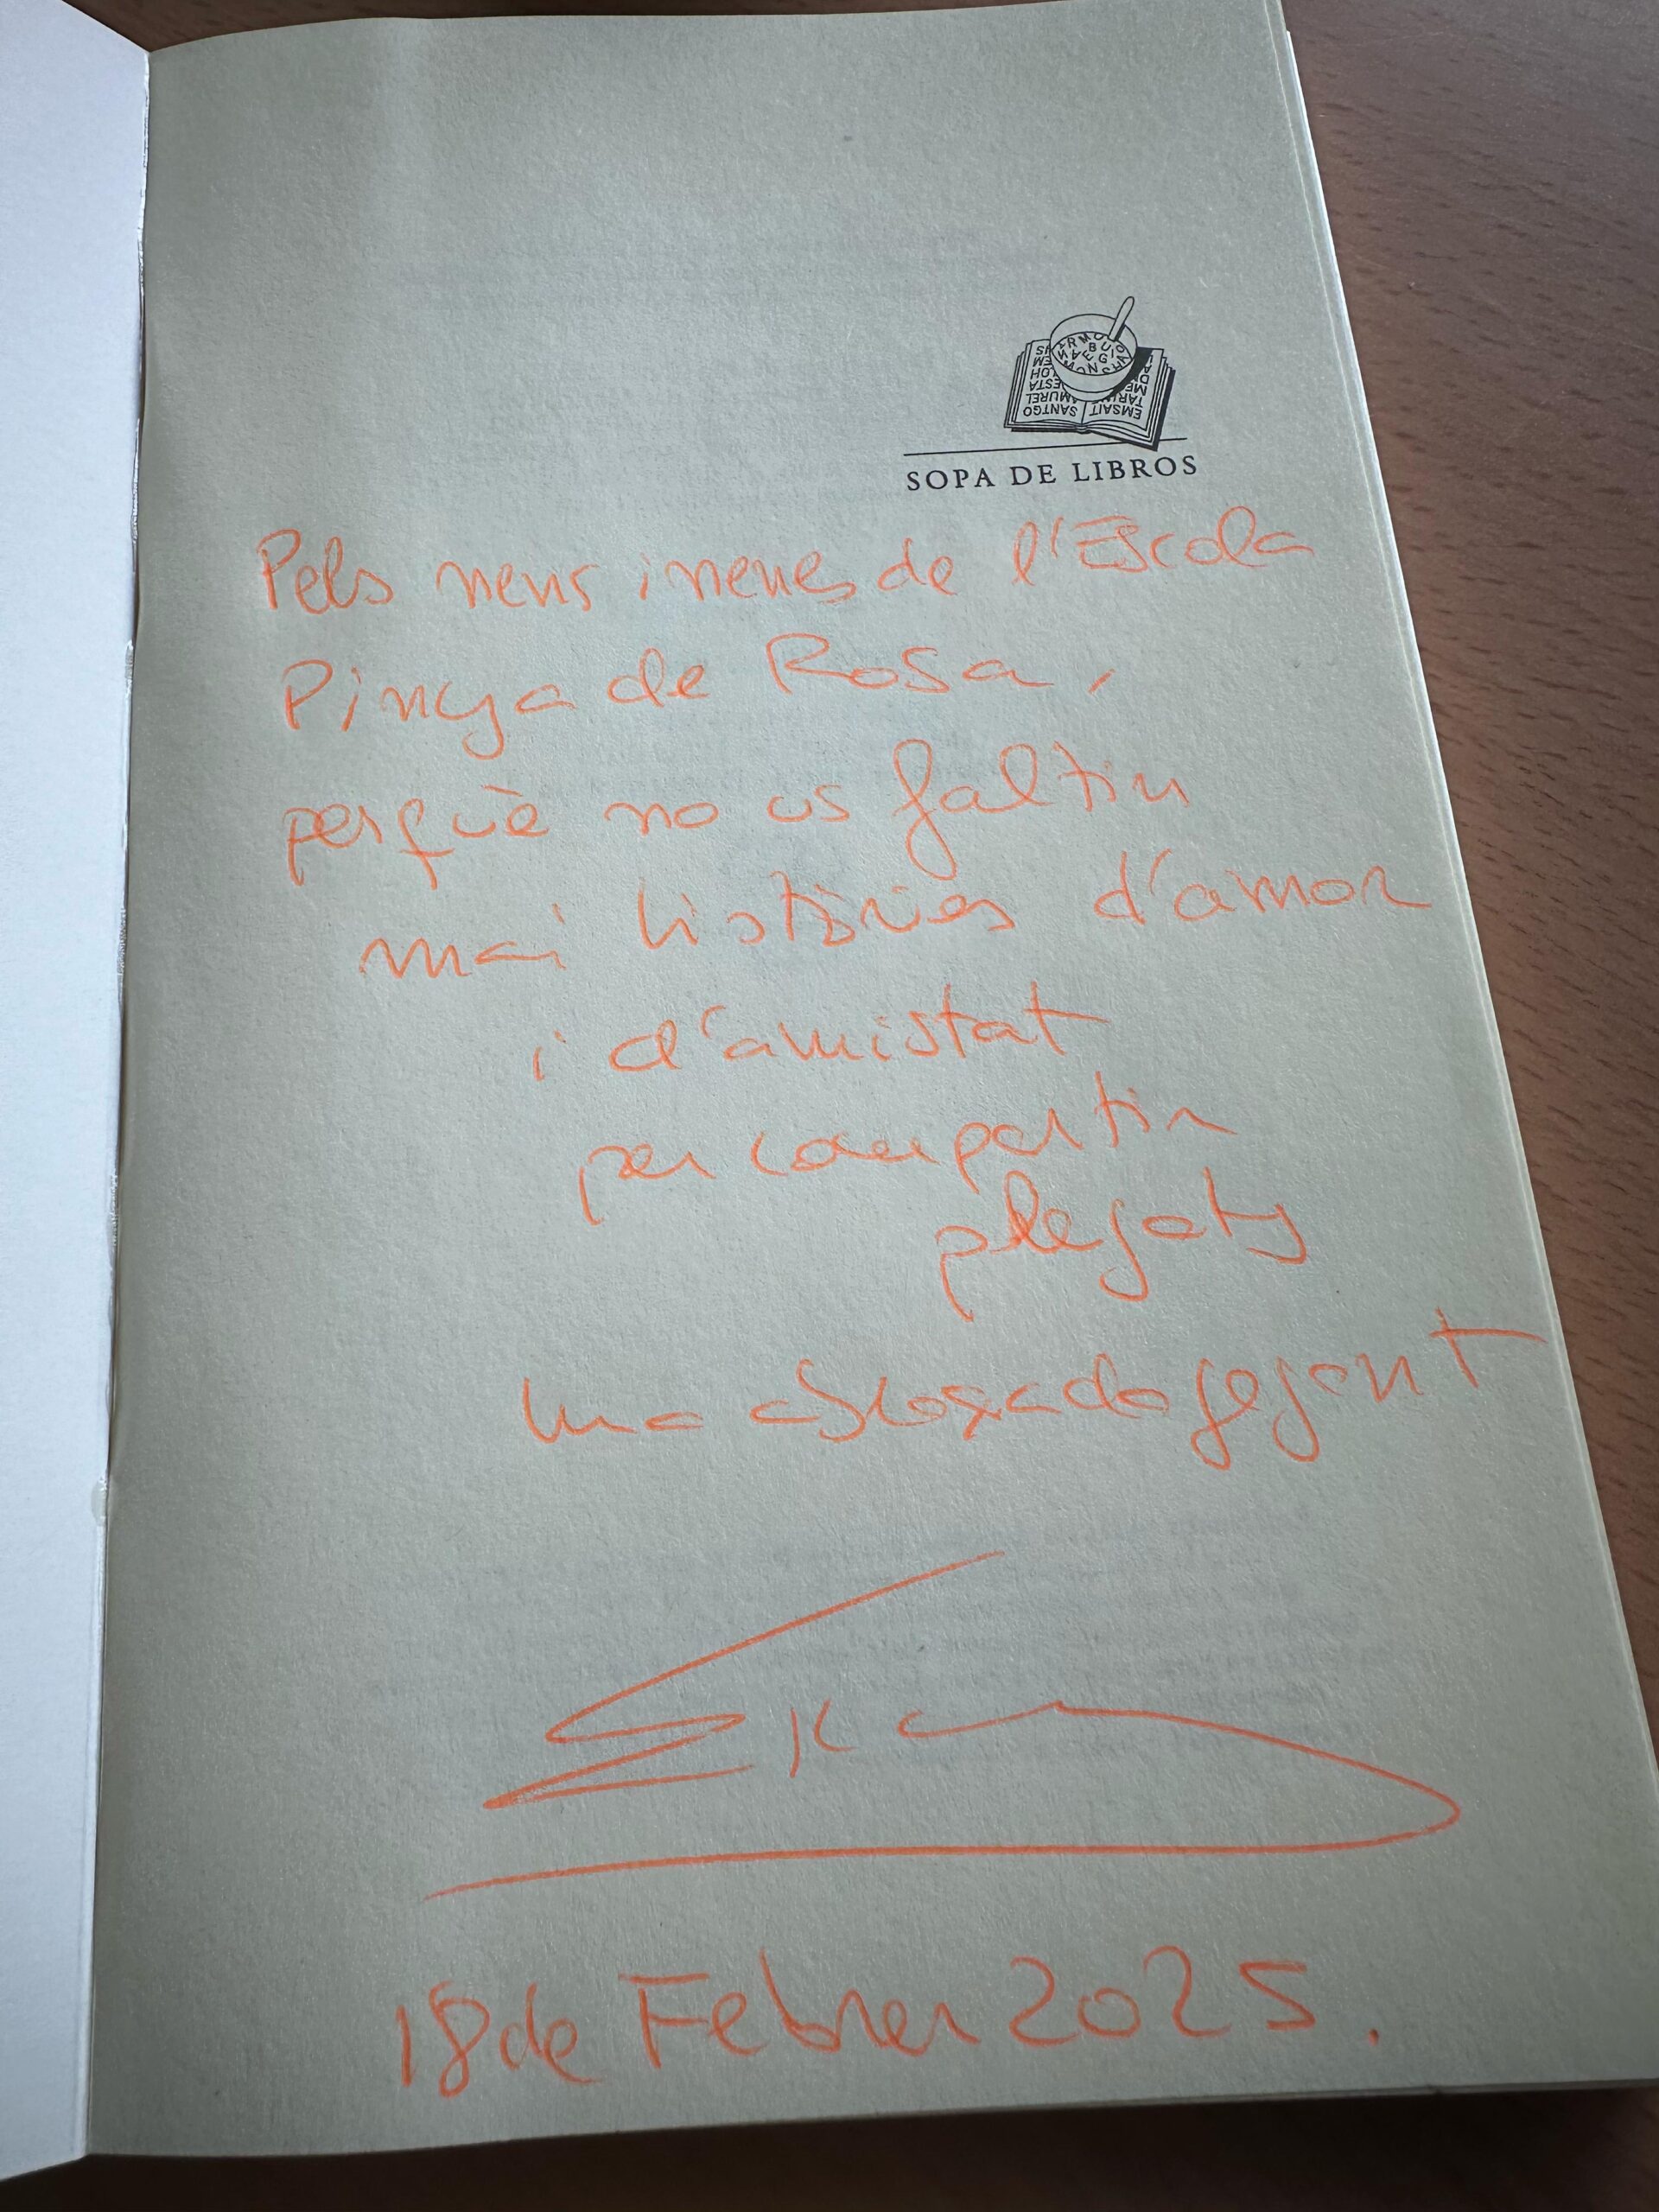 SOPA DE LIBROS
Pels nens i nenes de l'Escola
Pinya de Rosa,
perquè no us faltin
mai històries d'amor
i d'amistat
per compartir
plegats
Una abraçada gegant
18 de Febrer 2025.